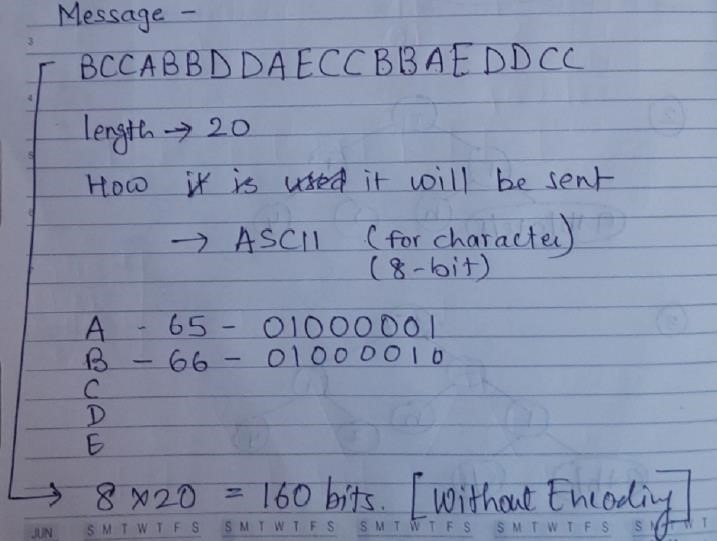 Message -
BCCABBDDAECCBBAEDDCC
length → 20
How it is used it will be sent
→ ASCII (for character)
(8-bit)
A - 65 - 01000001
B - 66 - 01000010
C
D
E
→ 8 x 20 = 160 bits. [Without Encoding]
JUN S M T W T F S S M T W T F S S M T W T F S S M T W T F S S M T W T